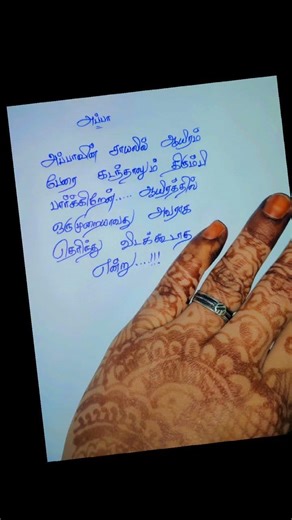 அப்பா
அப்பாவின் சாயலில் ஆயிரம்
பேரை கடந்தாலும் திரும்பி
பார்க்கிறேன்..... ஆயிரத்தில்
ஒருமுறையாவது அவராக
தெரிந்து விடக்கூடாத
என்று....!!!